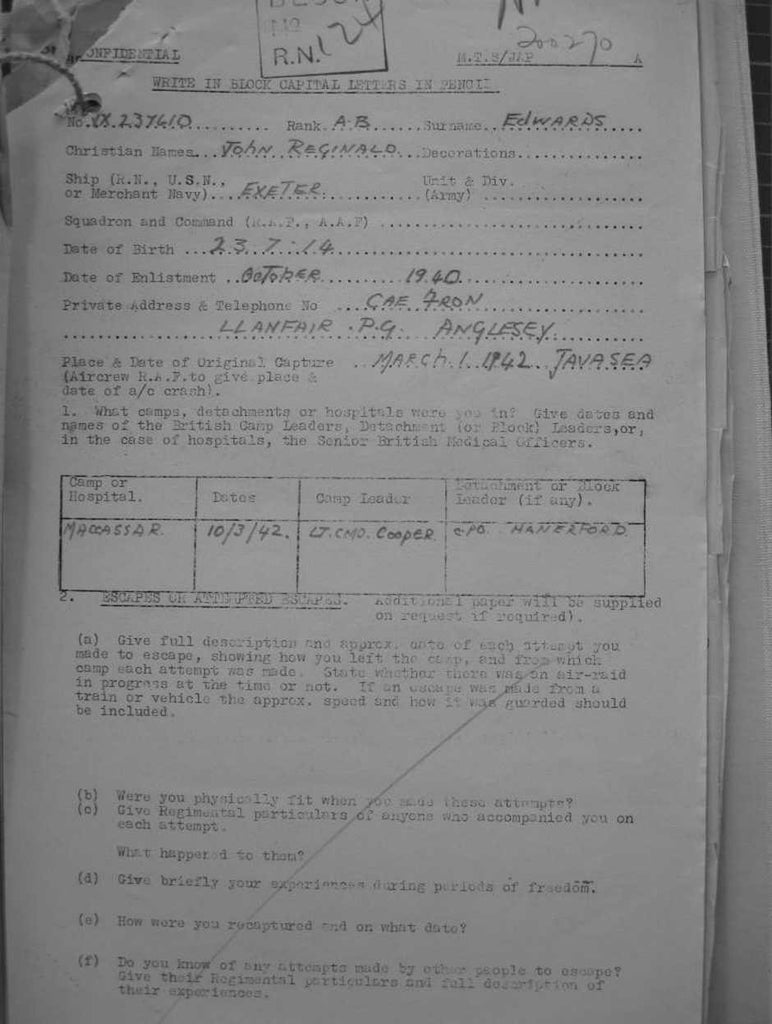 R.N. 124
CONFIDENTIAL
M.T.S/JAP 200270 A
WRITE IN BLOCK CAPITAL LETTERS IN PENCIL
No. 237610 Rank A.B Surname EDWARDS
Christian Names JOHN REGINALD Decorations
Ship (R.N., U.S.N., Unit & Div.
or Merchant Navy) EXETER (Army)
Squadron and Command (R.A.F., A.A.F)
Date of Birth 23.7.14
Date of Enlistment OCTOBER 1940
Private Address & Telephone No CAE FRON
LLANFAIR .P.G. ANGLESEY
Place & Date of Original Capture MARCH.1.1942 JAVASEA
(Aircrew R.A.F. to give place &
date of a/c crash).
1. What camps, detachments or hospitals were you in? Give dates and
names of the British Camp Leaders, Detachment (or Block) Leaders, or,
in the case of hospitals, the Senior British Medical Officers.
Camp or Detachment or Block
Hospital. Dates Camp Leader Leader (if any).
MACASSAR. 10/3/42. LT.CMD. COOPER C.P.O.
2. ESCAPES OR ATTEMPTED ESCAPES. Additional paper will be supplied
on request if required).
(a) Give full description and approx. date of each attempt you
made to escape, showing how you left the camp, and from which
camp each attempt was made. State whether there was an air-raid
in progress at the time or not. If an escape was made from a
train or vehicle the approx. speed and how it was guarded should
be included.
(b) Were you physically fit when you made these attempts?
(c) Give Regimental particulars of anyone who accompanied you on
each attempt.
What happened to them?
(d) Give briefly your experiences during periods of freedom.
(e) How were you recaptured and on what date?
(f) Do you know of any attempts made by other people to escape?
Give their Regimental particulars and full description of
their experiences.